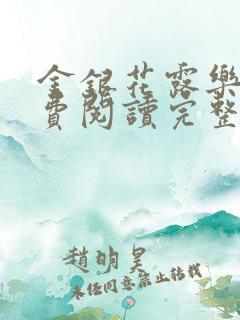 金銀花露樂
費閱讀完整
趙明昊
未任同意禁止转载